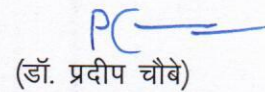 PC
(डॉ. प्रदीप चौबे)